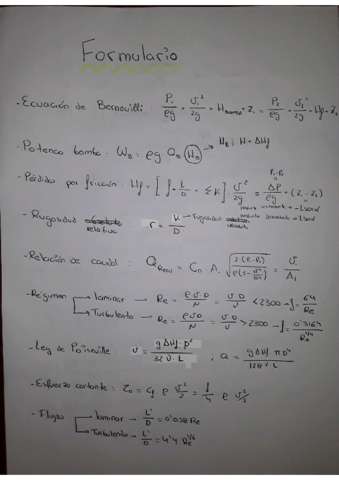 Formulario
- Ecuación de Bernouilli : P₁/ρg + v₁²/2g + H_bomba + Z₁ = P₂/ρg + v₂²/2g - Hf - Z₂
H_B ; H + ΔHf
- Potencia bomba : W_B = ρg Q_B (H_B)
P₁ - P₂
- Pérdidas por fricción : Hf = [f · L/D + ΣK] · v²/2g = ΔP/ρg + (Z₁ - Z₂)
- Rugosidad relativa : r = K/D → rugosidad absoluta
- Relación de caudal : Q_Real = C_D A₁
- Régimen laminar → Re = ρ v D/μ = v D/ν < 2300 → f = 64/Re
Turbulento → Re = ρ v D/μ = v D/ν > 2300 → f = 0'3164/Re^1/4
- Ley de Poiseuille : v = g ΔHf D²/32 ν L ; Q = g ΔHf π D⁴/128 ν L
- Esfuerzo cortante : τ₀ = Cf ρ v²/2 = f/4 ρ v²/2
- Flujos laminar → L'/D = 0'058 Re
Turbulento → L'/D = 4'4 Re^1/6